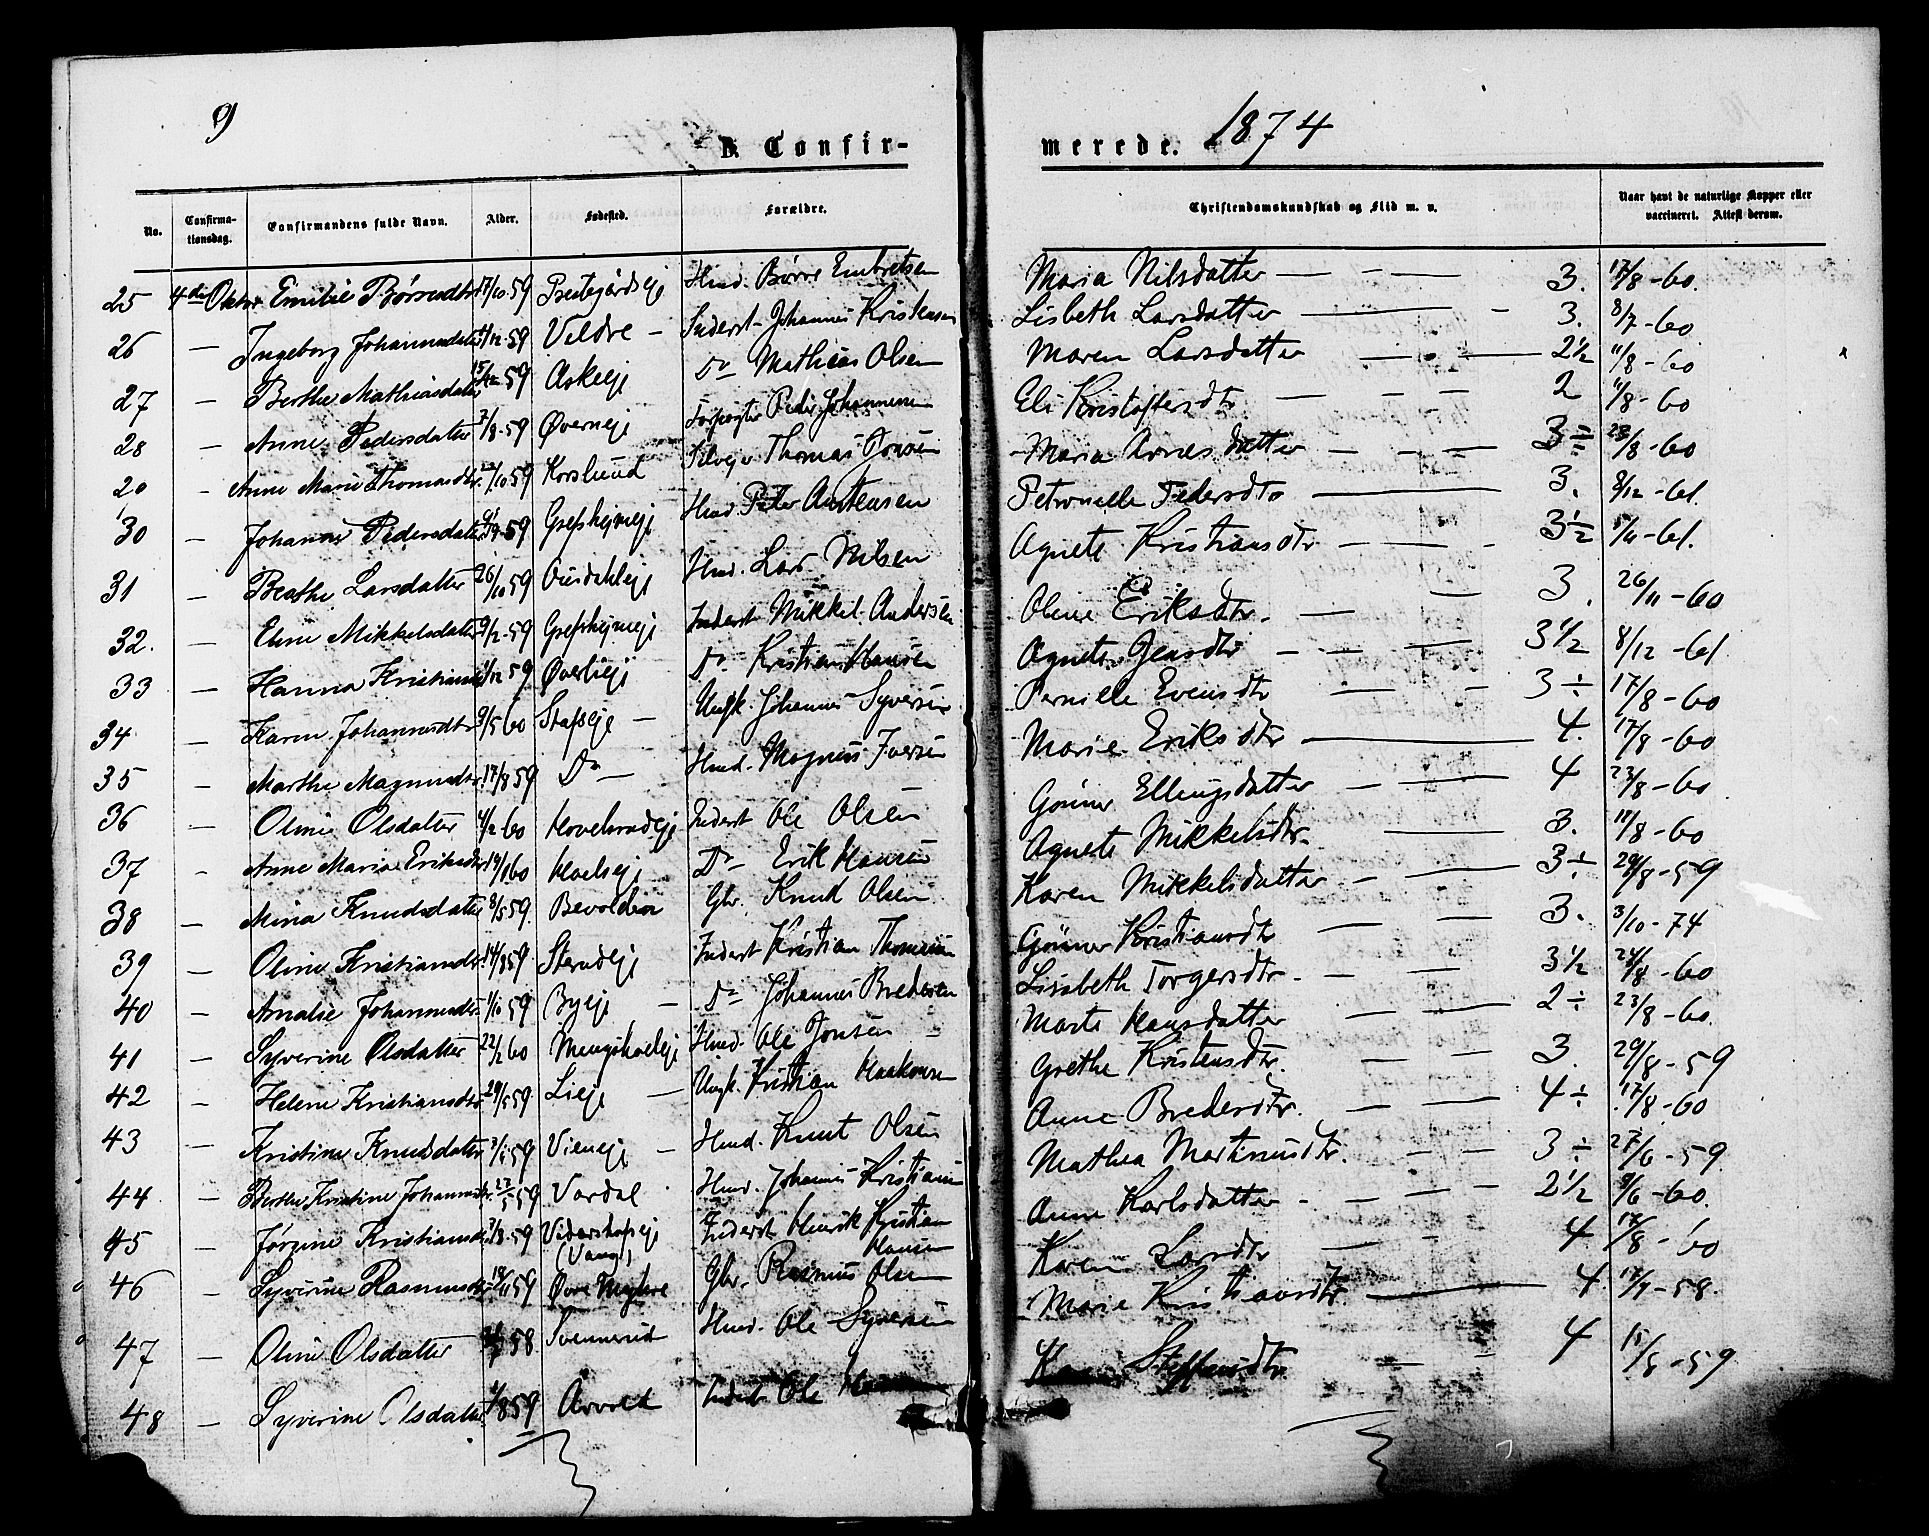 9
B. Confir-
merede. 1874
No. Confirma-tionsdag. Confirmandens fulde Navn. Alder. Fødested. Forældre. Christendomskundskab og Flid m. v. Naar havt de naturlige Kopper eller vaccineret. Attest derom.
25 4de Oktbr Emilie Børresdtr 17/10 59 Hmd. Børre Embretsen Maria Nilsdatter — — — 3. 17/8-60.
26 — Ingeborg Johannesdatter 4/12-59 Veldre — Inderst Johannes Kristensen Lisbeth Larsdatter — — 3. 8/7-60
27 — Berthe Mathiasdatter 15/12 59 Askeeje Do Mathias Olsen Maren Larsdatter — — 2½ 11/8-60
28 — Anne Pedersdatter 7/8-59 Øverneje Forpagter Peder Johannesen Eli Kristoffersdtr — — — 2 11/8-60
29 — Anne Marie Thomasdtr. /10 59 Korslund Selvejer Thomas Jonsen Maria Arnesdatter — — — 3÷ 23/8-60
30 — Johanne Pedersdatter 59 Grefsheimeje Hmd. Peter Austensen Petronelle Pedersdtr — 3. 8/12-61.
31 — Berthe Larsdatter 26/10 59 Hmd. Lars Nilsen Agnete Kristiansdtr — — — 3½ 5/11-61.
32. — Eline Mikkelsdatter 9/12-59 Grefsheimeje Inderst Mikkel Andersen Oline Eriksdtr. — — 3. 26/11-60
33 — Hanna Kristiansdtr /12 59 Øverlieje Do Kristian Hansen Agnete Jensdtr — — — 3½ 8/12-61
34 — Karen Johannesdtr 9/5 60 Stafseje — Ungk. Johannes Syversen Pernille Evensdtr — — 3÷ 17/8-60
35 — Marthe Magnusdtr. 17/8 59 Do — Hmd. Magnus Iversen Marie Eriksdtr — 4. 17/8-60
36 — Oline Olsdatter 4/2 60 Hovelsrudeje Inderst Ole Olsen Gunner Ellingsdatter — — — 4 23/8-60
37 — Anne Maria Eriksdtr 19/1 60 Hoelseje Do Erik Hansen Agnete Mikkelsdtr. — 3. 18/8-60
38 — Mina Knudsdatter 8/5 59. Bevolden Gbr. Knud Olsen Karen Mikkelsdatter — — 3÷ 29/8-59
39 — Oline Kristiansdtr. 14/8 59 Steneeje Inderst Kristian Thomesen Gunner Kristiansdtr — — — 3. 3/10-74
40 — Amalie Johannesdtr 1/10 59 Byeje — Do Johannes Bredesen Lisabeth Torgersdtr. — — — 3½ 24/8-60
41 — Syverine Olsdatter 22/2 60 Mengshoeleje Hmd. Ole Jonsen Marte Hansdatter — — — 2÷ 23/8-60.
42 — Helene Kristiansdtr 29/5 59 Lieje — Ungk. Kristian Haakonsen Grethe Kristensdtr. — — — 3. 29/8-59
43 — Kristine Knudsdatter 3/1 59 Vieneje — Hmd. Knut Olsen Anne Bredesdtr. — — — 4÷ 17/8-60
44 — Berthe Kristine Johannesdtr. 59 Vardal Hmd. Johannes Kristiansen Mathea Martinusdtr. — — 3÷ 27/6-59
45 — Jørgine Kristiansdtr 7/8-59 Viderstafseje (Vang) Inderst Henrik Kristian Hansen Anne Karlsdatter — — — 2½ 9/6-60.
46 — Syverine Rasmusdtr 18/11 59 Øvre Myhre Gbr. Rasmus Olsen Karen Larsdtr — — 4 17/8-60
47 — Oline Olsdatter 58 Svennerud Hmd. Ole Syversen Marie Kristiansdtr. — 4. 17/7-58.
48 — Syverine Olsdatter 8 59 Inderst Ole Steffensdtr — — 4 15/8-59